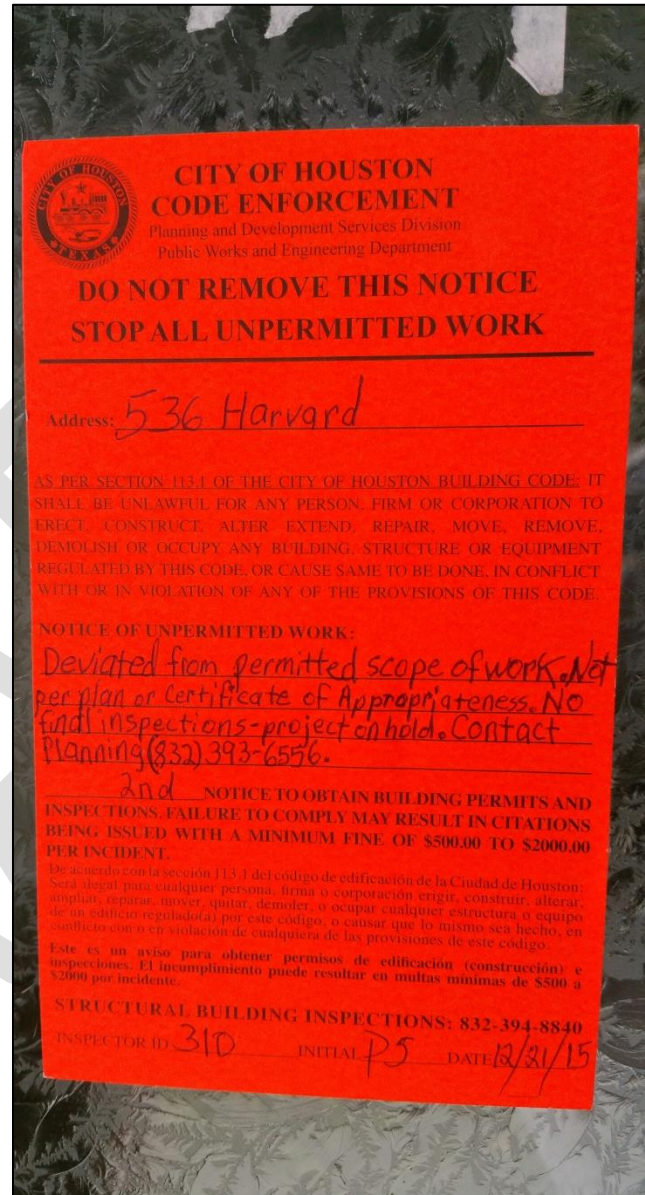 CITY OF HOUSTON
TEXAS
CITY OF HOUSTON
CODE ENFORCEMENT
Planning and Development Services Division
Public Works and Engineering Department
DO NOT REMOVE THIS NOTICE
STOP ALL UNPERMITTED WORK
Address: 536 Harvard
AS PER SECTION 113.1 OF THE CITY OF HOUSTON BUILDING CODE: IT
SHALL BE UNLAWFUL FOR ANY PERSON, FIRM OR CORPORATION TO
ERECT, CONSTRUCT, ALTER EXTEND, REPAIR, MOVE, REMOVE,
DEMOLISH OR OCCUPY ANY BUILDING, STRUCTURE OR EQUIPMENT
REGULATED BY THIS CODE, OR CAUSE SAME TO BE DONE, IN CONFLICT
WITH OR IN VIOLATION OF ANY OF THE PROVISIONS OF THIS CODE.
NOTICE OF UNPERMITTED WORK:
Deviated from permitted scope of work. Not
per plan or Certificate of Appropriateness. No
final inspections-project on hold. Contact
Planning (832) 393-6556.
2nd NOTICE TO OBTAIN BUILDING PERMITS AND
INSPECTIONS. FAILURE TO COMPLY MAY RESULT IN CITATIONS
BEING ISSUED WITH A MINIMUM FINE OF $500.00 TO $2000.00
PER INCIDENT.
De acuerdo con la sección 113.1 del código de edificación de la Ciudad de Houston:
Será ilegal para cualquier persona, firma o corporación erigir, construir, alterar,
ampliar, reparar, mover, quitar, demoler, o ocupar cualquier estructura o equipo
de un edificio regulado(a) por este código, o causar que lo mismo sea hecho, en
conflicto con o en violación de cualquiera de las provisiones de este código.
Este es un aviso para obtener permisos de edificación (construcción) e
inspecciones. El incumplimiento puede resultar en multas mínimas de $500 a
$2000 por incidente.
STRUCTURAL BUILDING INSPECTIONS: 832-394-8840
INSPECTOR ID 310 INITIAL PS DATE 12/21/15